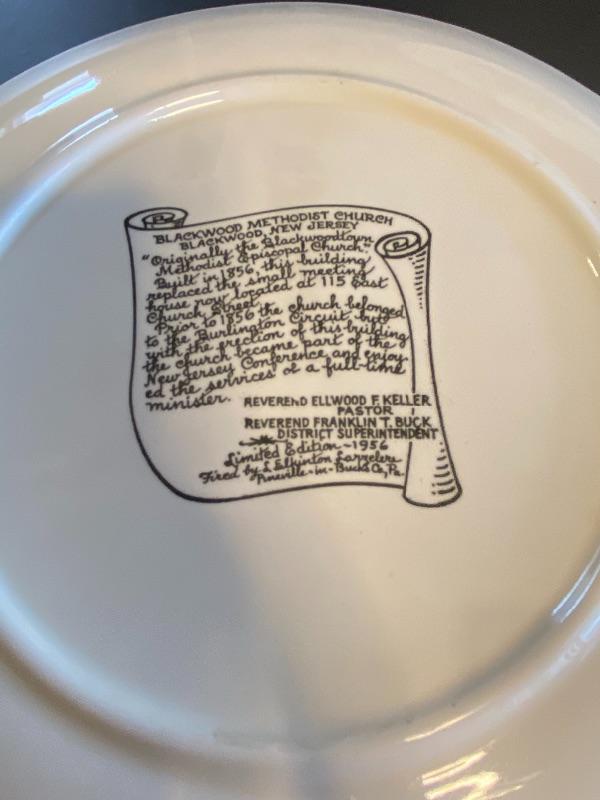 BLACKWOOD METHODIST CHURCH
BLACKWOOD, NEW JERSEY
"Originally the Blackwoodtown
Methodist Episcopal Church."
Built in 1856, this building
replaced the small meeting
house now located at 115 East
Church Street.
Prior to 1856 the church belonged
to the Burlington Circuit, but
with the erection of this building
the church became part of the
New Jersey Conference and enjoy-
ed the services of a full-time
minister.
REVEREND ELLWOOD F. KELLER
PASTOR
REVEREND FRANKLIN T. BUCK
DISTRICT SUPERINTENDENT
Limited Edition-1956
Fired by L. Elkinton Larzelere
Pineville-in-Bucks Co., Pa.